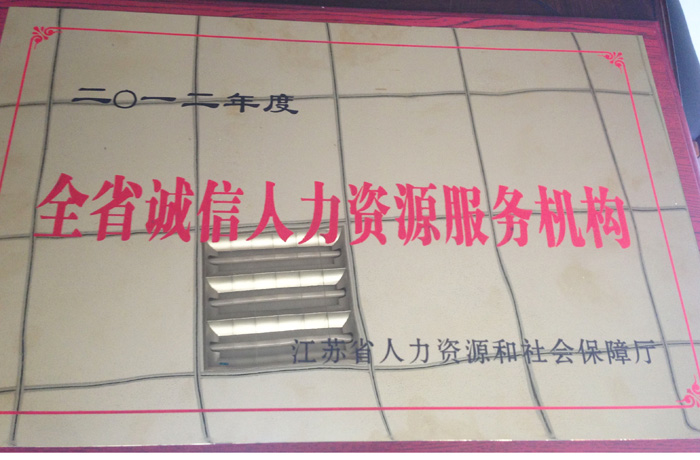 二〇一二年度
全省诚信人力资源服务机构
江苏省人力资源和社会保障厅